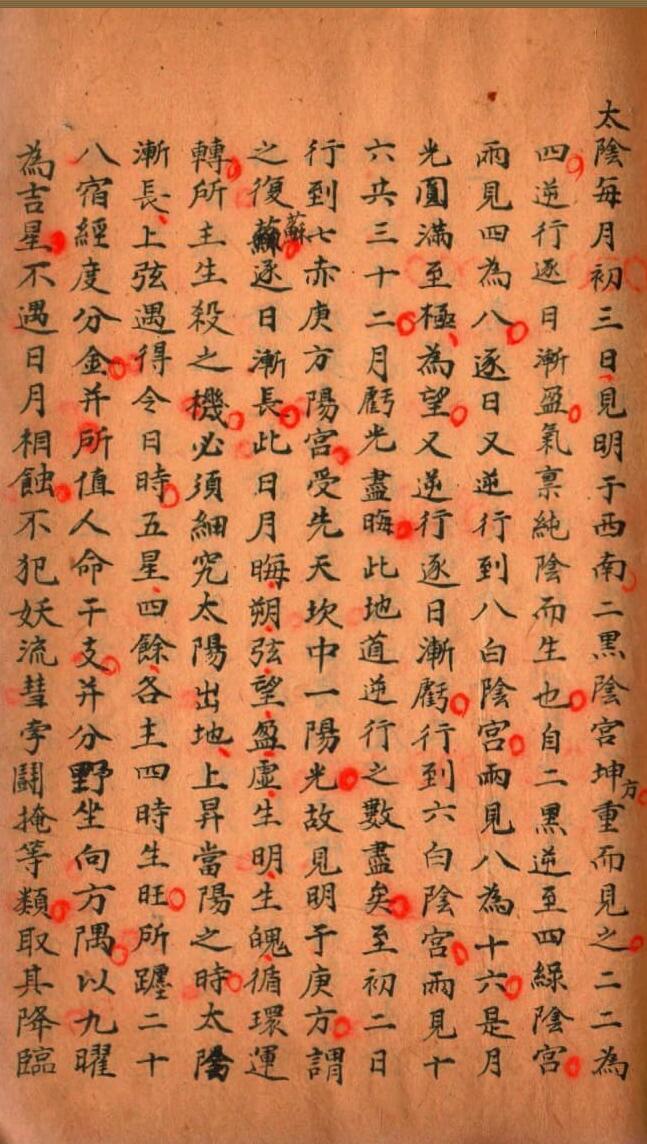 太陰每月初三日見明于西南二黑陰宮坤方重而見之二二為
四逆行逐日漸盈氣禀純陰而生也自二黑逆至四綠陰宮
兩見四為八逐日又逆行到八白陰宮兩見八為十六是月
光圓滿至極為望又逆行逐日漸虧行到六白陰宮兩見十
六共三十二月虧光盡晦此地道逆行之數盡矣至初二日
行到七赤庚方陽宮受先天坎中一陽光故見明于庚方謂
之復蘇逐日漸長此日月晦朔弦望盈虛生明生魄循環運
轉所主生殺之機必須細究太陽出地上昇當陽之時太陰
漸長上弦遇得令日時五星四餘各主四時生旺所躔二十
八宿經度分金并所值人命干支并分野坐向方隅以九曜
為吉星不遇日月相蝕不犯妖流彗孛鬪掩等類取其降臨